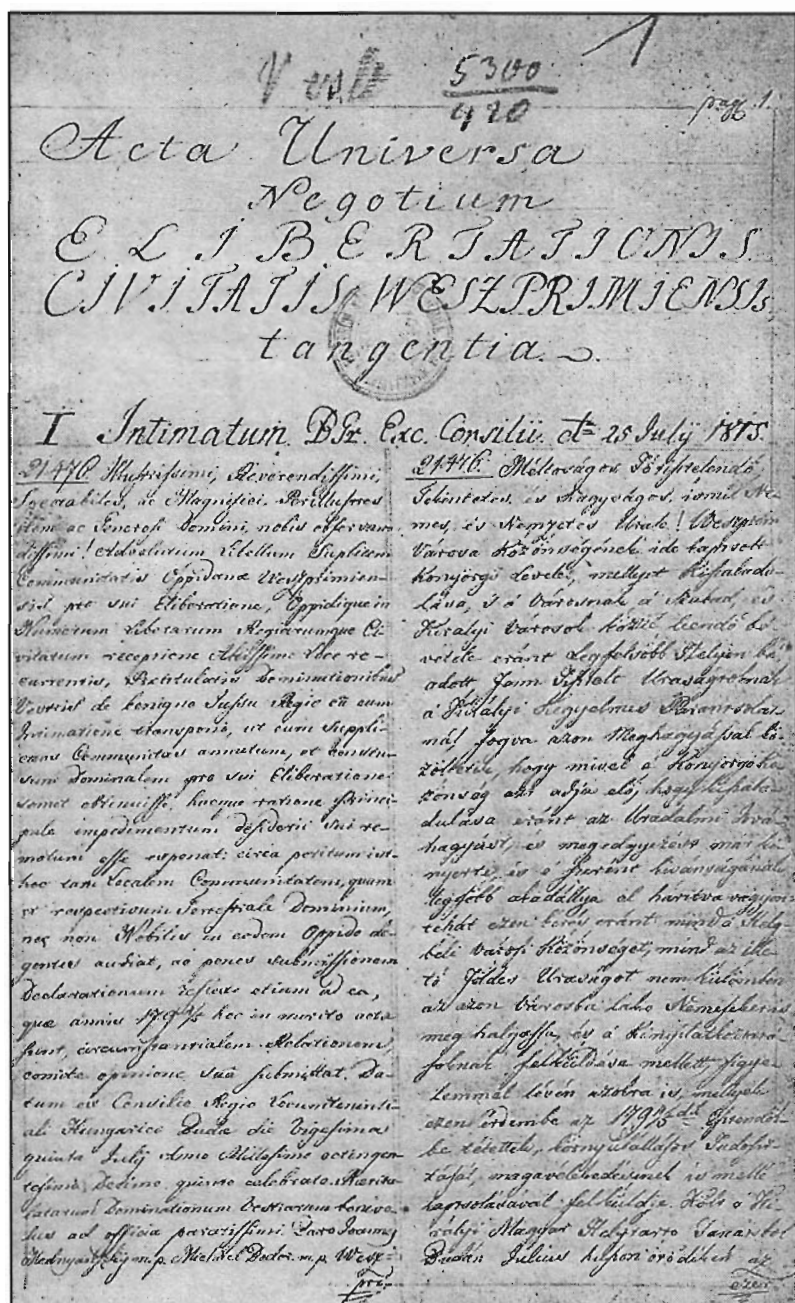 1
V us 5300
420
pag 1.
Acta Universa
Negotium
ELIBERTATIONIS
CIVITATIS WESZPRIMIENSIS,
tangentia.
I Intimatum. B Gr. Exc. Consilii. dto 25 July 1815.
21476. Illustrissimi, Reverendissimi,
Spectabiles, ac Magnifici. Perillustres
item ac Generosi Domini, nobis observan-
dissimi! Advolutum Libellum Suplicem
Communitatis Oppidanæ Weszprimien-
sis, pro sui Eliberatione, Oppidique in
Numerum Liberarum Regiarumque Ci-
vitatum receptione Altissimo Loco re-
currentis, Prætitulatis Dominationibus
Vestris de benigno Jussu Regio eum
Intimatione transponi, ut cum Suppli-
cans Communitas annutum, et Consen-
sum Dominalem pro sui Eliberatione
semet obtinuisse, hacque ratione Princi-
pale impedimentum desiderii sui re-
motum esse exponat: circa petitum ist-
hoc tam Localem Communitatem, quam
et respectivum Terrestrale Dominium,
nec non Nobiles in eodem Oppido de-
gentes audiat, ac penes submissionem
Declarationum reflexe etiam ad ea,
quæ annis 1794/5 hoc in merito acta
sunt, circumstantialem Relationem,
comite opinione sua submittat. Da-
tum ex Consilio Regio Locumtenenti-
ali Hungarico Budæ die Vigesima
quinta Julij Anno Millesimo octingen-
tesimo Decimo quinto celebrato. Prætitu-
latarum Dominationum Vestrarum benevo-
lus ad officia paratissimi Joannes
Mednyanszky m.p. Michael m.p. Wesz=
prim
21476. Méltóságos Főtisztelendő
Tekintetes, és Nagyságos, ismét Ne-
mes, és Nemzetes Urak! Weszprém
Városa Közönségének ide tapsolt
Könyörgő Levele, mellyet Kiszabadu-
lása, 's á Városnak á Szabad és
Királyi Városok közzé leendő bé-
vétele eránt Legfelsőbb Helyen bé
adott Uraságtoknak
á Királyi Kegyelmes Parancsolat-
nál fogva azon Meghagyással kü-
zöltetik, hogy mivel á Könyörgő kö-
zönség azt adja elő, hogy kiszaba-
dulása eránt az Uradalmi Jóvá
hagyást, és megedgyezést már ki-
nyerte, és á szerént kivánságának
legfőbb akadállya el hárítva vagyon
tehát ezen kérés eránt mind á Hely-
beli Városi Közönséget, mind az ille-
tő Földes Uraságot nem külömben
az azon Városba lakó Nemeseket is
meg halgassa, és á Kinyilatkoztatá-
soknak felküldése mellett, figye-
lemmel lévén azokra is, mellyek
ezen érdembe az 1794/5dik Esztendők-
be tétettek, környülállásos Tudósí-
tását, maga vélekedésének is mellé
kapcsolásával felküldje. Költ á Ki-
rályi Magyar Helytartó Tanácsból
Budán Julius huszonötödikén az
ezer